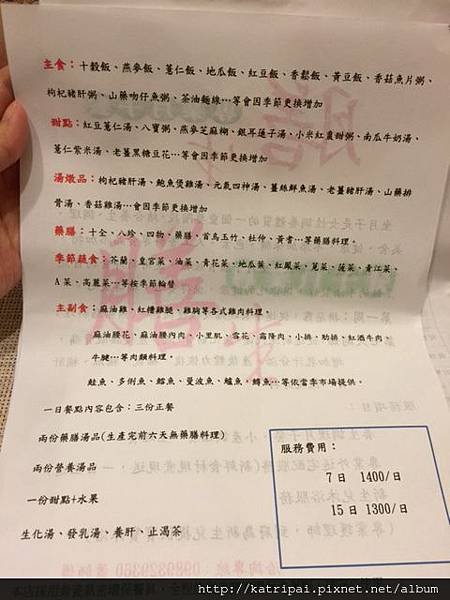 主食：十穀飯、燕麥飯、薏仁飯、地瓜飯、紅豆飯、香鬆飯、黃豆飯、香菇魚片粥、
枸杞豬肝粥、山藥吻仔魚粥、茶油麵線…等會因季節更換增加
甜點：紅豆薏仁湯、八寶粥、燕麥芝麻糊、銀耳蓮子湯、小米紅棗甜粥、南瓜牛奶湯、
薏仁紫米湯、老薑黑糖豆花…等會因季節更換增加
湯燉品：枸杞豬肝湯、鮑魚煲雞湯、元氣四神湯、薑絲鮮魚湯、老薑豬肝湯、山藥排
骨湯、香菇雞湯…會因季節更換增加
藥膳：十全、八珍、四物、藥膳、首烏玉竹、杜仲、黃耆…等藥膳料理。
季節蔬食：芥蘭、皇宮菜、油菜、青花菜、地瓜葉、紅鳳菜、莧菜、菠菜、青江菜、
A菜、高麗菜…等按季節輪替
主副食：麻油雞、紅糟雞腿、雞胸等各式雞肉料理。
麻油腰花、麻油腰內肉、小里肌、雪花、高降肉、小排、肋排、紅酒牛肉、
牛腱…等肉類料理。
鮭魚、多俐魚、鱈魚、曼波魚、鱸魚、鯛魚…等依當季市場提供。
一日餐點內容包含：三份正餐
兩份藥膳湯品(生產完前六天無藥膳料理)
兩份營養湯品
一份甜點+水果
生化湯、發乳湯、養肝、正渴茶
服務費用：
7日 1400/日
15日 1300/日
http://katripai.pixnet.net/album